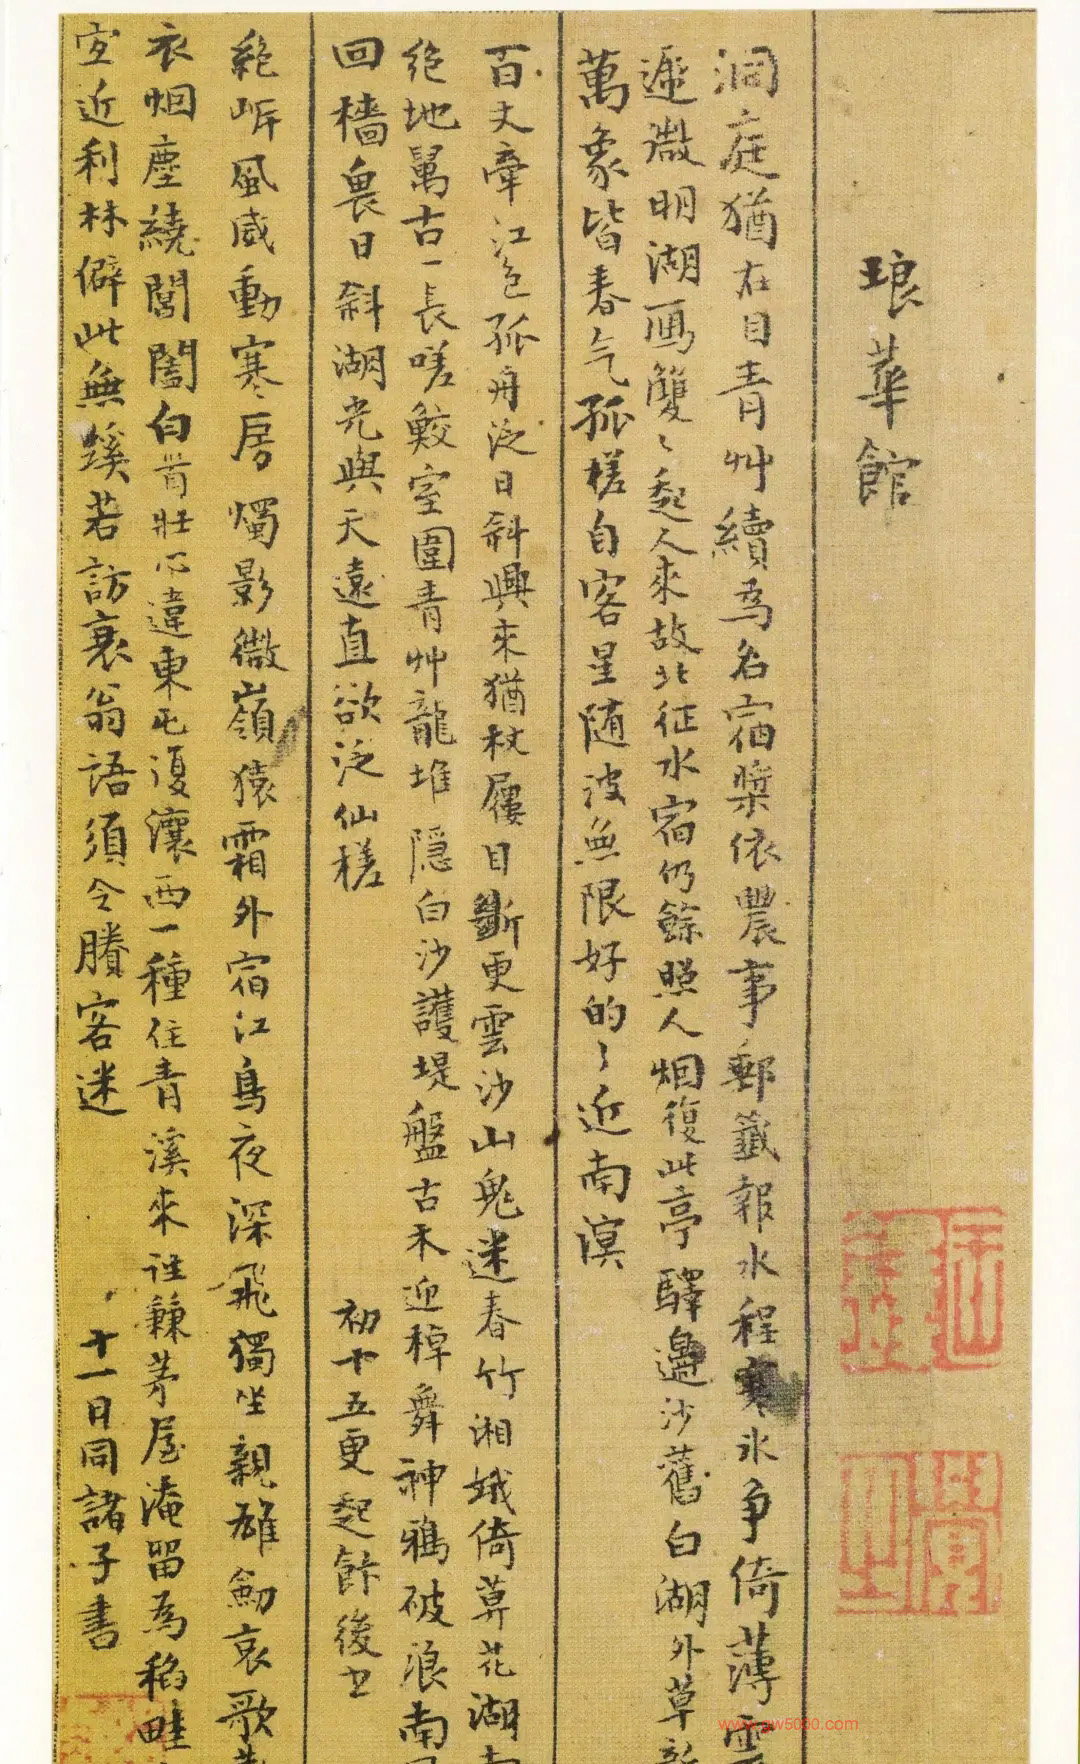 琅華館
洞庭猶在目青艸續為名宿槳依農事郵籤報水程寒冰爭倚薄雲
遞微明湖雁雙〻起人來故北征水宿仍餘照人烟復此亭驛邊沙舊白湖外草新
萬象皆春气孤槎自客星随波無限好的〻近南溟
百丈牽江色孤舟泛日斜興來猶杖屨目斷更雲沙山鬼迷春竹湘娥倚莫花湖南
絕地萬古一長嗟鮫室圍青艸龍堆隐白沙護堤盤古木迎棹舞神鴉破浪南風
回檣畏日斜湖光與天遠直欲泛仙槎
初十五更起飲後书
絕岸風威動寒房燭影微嶺猿霜外宿江鳥夜深飛獨坐親雄劍哀歌
衣烟塵繞閶闔白首壯心違東屯復瀼西一種住青溪來往蒹茅屋淹留為稻畦
宜近利林僻此無蹊若訪衰翁語須令賸客迷
十一日同諸子書
www.yw5000.com